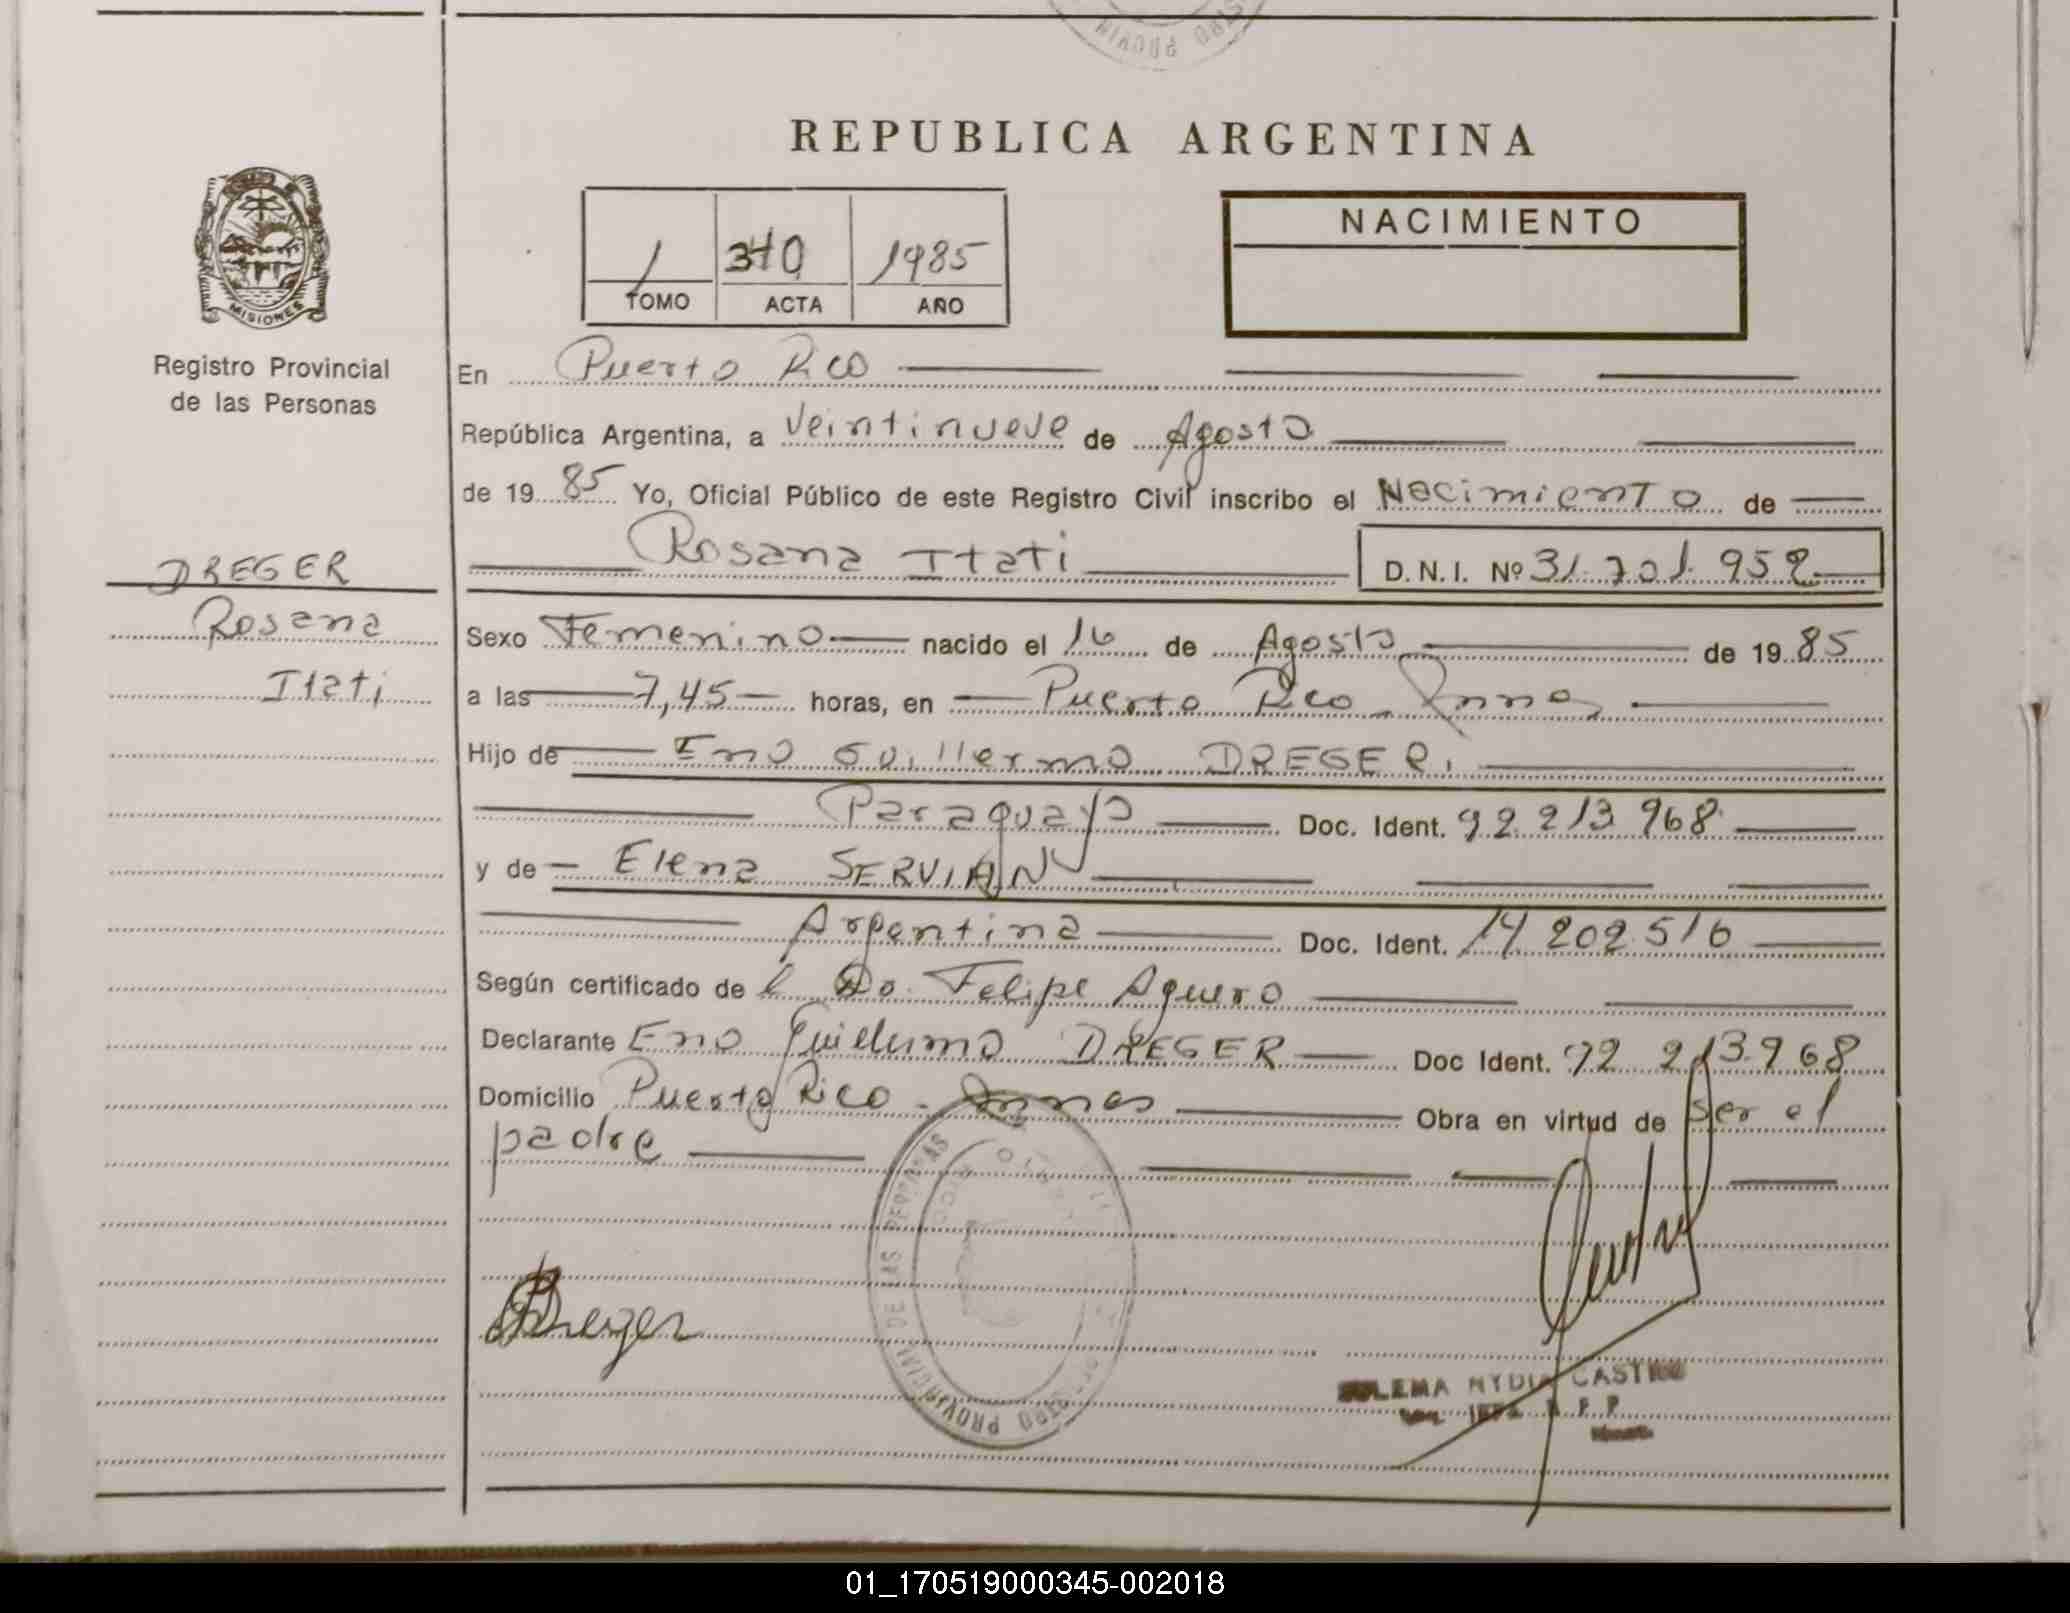 REPUBLICA ARGENTINA
MISIONES
Registro Provincial
de las Personas
1 340 1985
TOMO ACTA AÑO
NACIMIENTO
En Puerto Rico
República Argentina, a Veintinueve de Agosto
de 1985 Yo, Oficial Público de este Registro Civil inscribo el Nacimiento de
Rosana Itati D.N.I. Nº 31.701.952
DREGER
Rosana
Itati
Sexo Femenino nacido el 16 de Agosto de 1985
a las 7,45 horas, en Puerto Rico
Hijo de Eno Guillermo DREGER.
Paraguayo Doc. Ident. 92 213 968
y de Elena SERVIAN
Argentina Doc. Ident. 14 202 516
Según certificado de Felipe Aguero
Declarante Eno Guillermo DREGER Doc Ident. 92 213.968
Domicilio Puerto Rico - Obra en virtud de ser el
padre
Dreger
NYDIA CASTRO
01_170519000345-002018